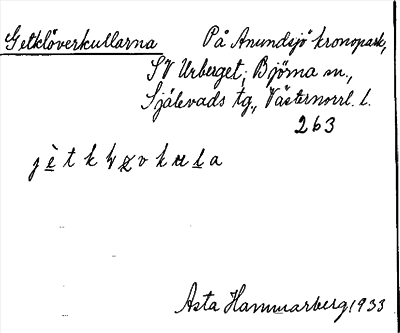 Getklöverkullarna På Anundsjö kronopark,
SV Urberget, Björna sn.,
Själevads tg., Västernorrl. l.
263
Asta Hammarberg 1933